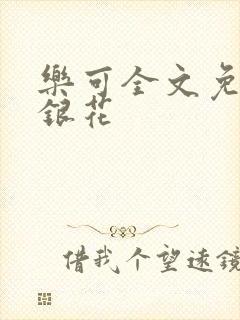 樂可全文免
銀花
借我个望远镜